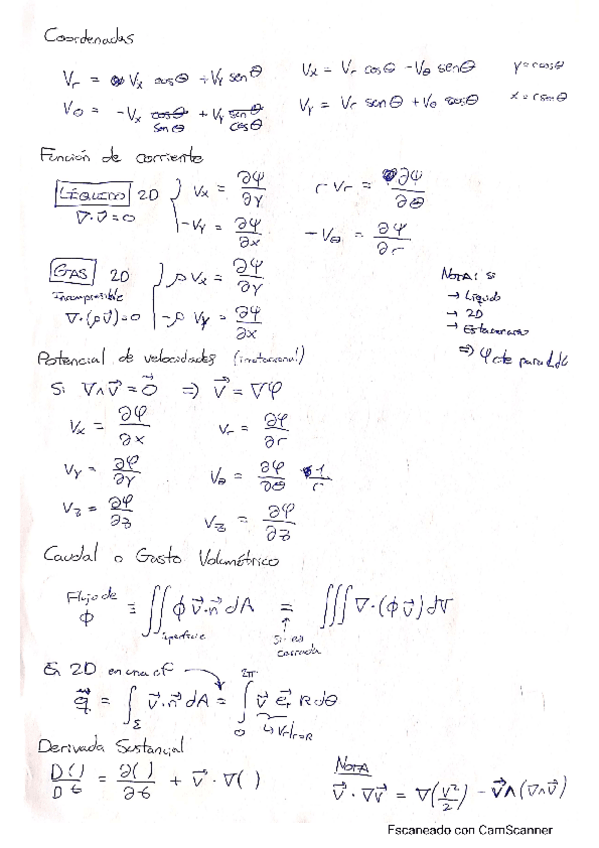 Coordenadas
Vr = Vx cosθ + Vy senθ
Vx = Vr cosθ - Vθ senθ
y = r cosθ
Vθ = -Vx senθ + Vy cosθ
Vy = Vr senθ + Vθ cosθ
x = r senθ
Función de corriente
LÍQUIDO 2D
∇·v⃗ = 0
Vx = ∂ψ/∂y
-Vy = ∂ψ/∂x
r Vr = ∂ψ/∂θ
-Vθ = ∂ψ/∂r
GAS 2D
Incompresible
∇·(ρv⃗) = 0
ρ Vx = ∂ψ/∂y
-ρ Vy = ∂ψ/∂x
NOTA: Si
→ Líquido
→ 2D
→ Estacionario
⇒ ψ cte para
Potencial de velocidades (irrotacional)
Si ∇∧v⃗ = 0⃗ ⇒ v⃗ = ∇φ
Vx = ∂φ/∂x
Vr = ∂φ/∂r
Vy = ∂φ/∂y
Vθ = ∂φ/∂θ 1/r
V3 = ∂φ/∂3
V3 = ∂φ/∂3
Caudal o Gasto Volumétrico
Flujo de ϕ ≡ ∬ ϕ v⃗·n⃗ dA = ∭ ∇·(ϕ v⃗) dV
superficie
Si es cerrada
En 2D en una cf
q = ∫Σ v⃗·n⃗ dA = ∫₀^2π v⃗ e⃗r R dθ
↳ Vr|r=R
Derivada Sustancial
D( )/Dt = ∂( )/∂t + v⃗ · ∇( )
NOTA
v⃗ · ∇v⃗ = ∇(v²/2) - v⃗∧(∇∧v⃗)
Escaneado con CamScanner